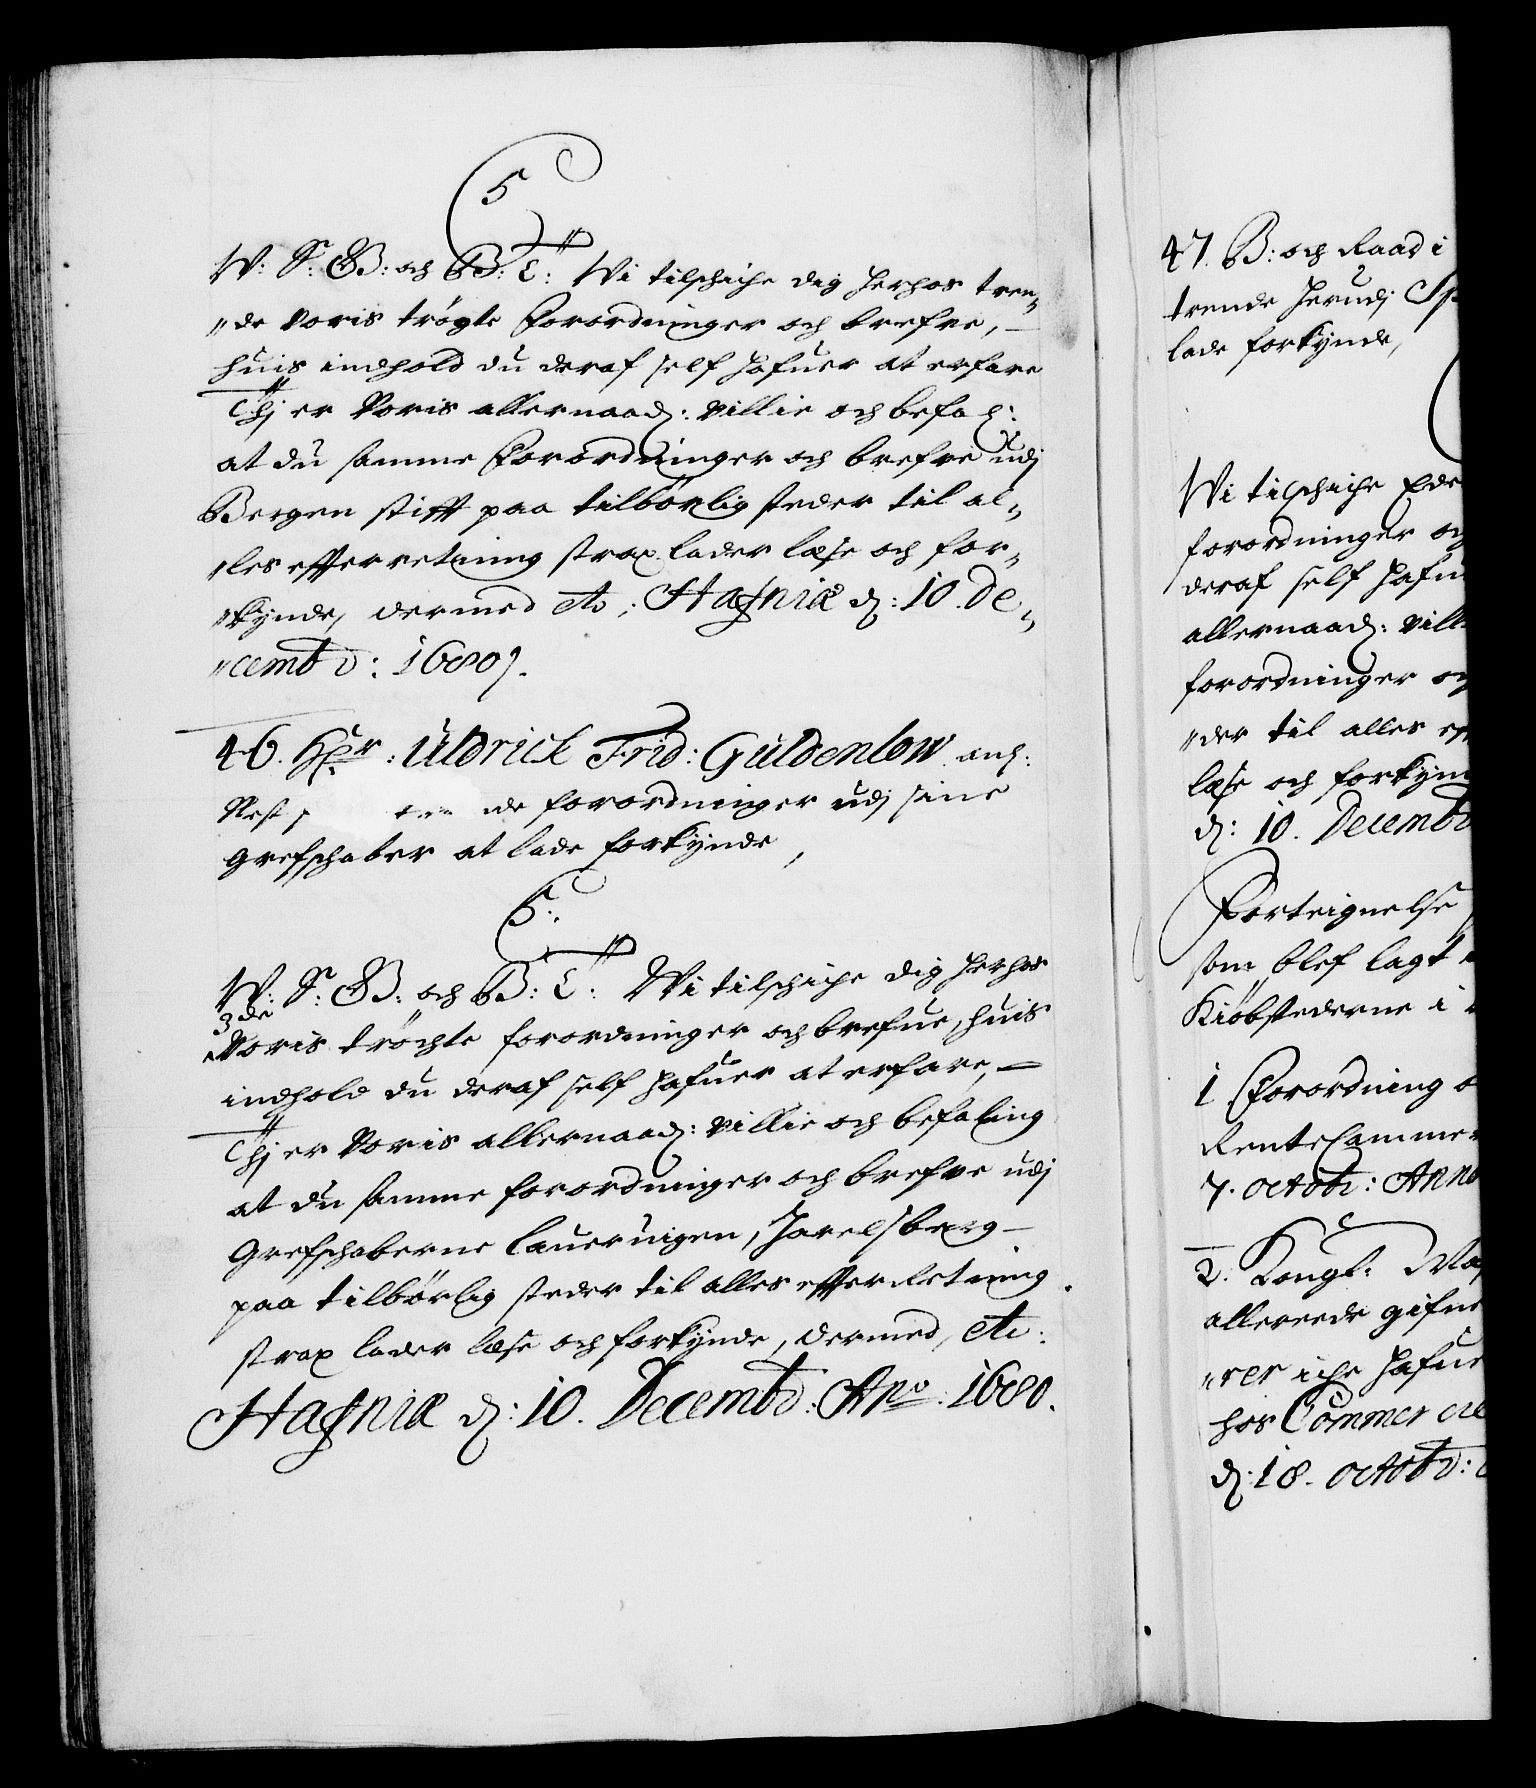 5
W: S: G B: och B: E: Wi tilschiche dig herhos tren„
„de Voris trögte Forordninger och brefve, –
huis indhold du deraf self hafuer at erfare
Thj er Voris allernaad: villie och befal:
at du samme Forordninger och brefve udj
Bergen stifft paa tilbörlig steder til al„
„les efferretning strax lader læse och for„
„kynde, dermed etc: Hafniæ d: 10. De„
„cembr: 1680.
46. Hr: Uldrick Frid: Güldenlow anl:
de forordninger udj sine
Grefschaber at lade forkynde,
5:
W: S: G B: och B: E: Wi tilschiche dig herhos
3de
Voris tröchte forordninger och brefue, huis
indhold du deraf self hafuer at erfare, –
Thj er Voris allernaad: villie och befaling
at du samme forordninger och brefve udj
Grefschaberne Lauervigen, Jarelsberg –
paa tilbörlig steder til alles effterretning
strax lader læse och forkynde, dermed, etc:
Hafniæ d: 10. Decembr: Ano: 1680.
47. B: och Raad i
trende herudj
lade forkynde,
Wi tilschiche Eder
forordninger og
deraf self hafu
allernaad: vill
forordninger og
„der til alles ef
læse och forkyn
d: 10. Decembr
Forteignelse
som blef lagt
Kiöbstederne i
1 Forordning o
RenteCammer
7. octobr: Anno
2. Kongl: May
allereede gifne
„rer iche hafue
hos Commerce
d: 18. octobr: